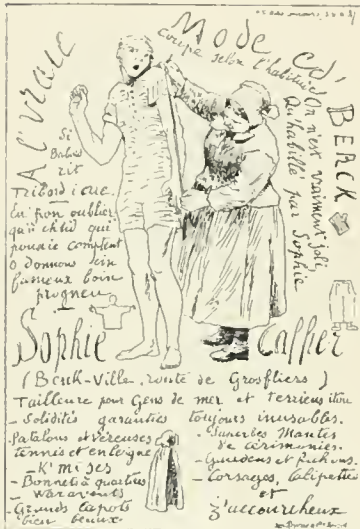 A l'vraie
Mode ed' BERCK
Coupe selon l'habitude
On n'est vraiment joli
Qu'habillé par Sophie
Si
rit
Tribord i crie
qui
pouvie comptent
O donnons
fameux
Sophie Caffier
(Berck-Ville, route de Grosfliers)
Tailleure pour Gens de mer et terriens itou
- Solidités garanties toujours inusables.
Patalons et vareuses
tennés et en teigne
- K'mises
- Bonnets à quartiers
- Waravents
- Grands capots
bien beaux
- Superbes Mantes
de cérimonies.
- Guerdens et Ruchons.
- Corsages, Calipettes
et
z'accourcheux